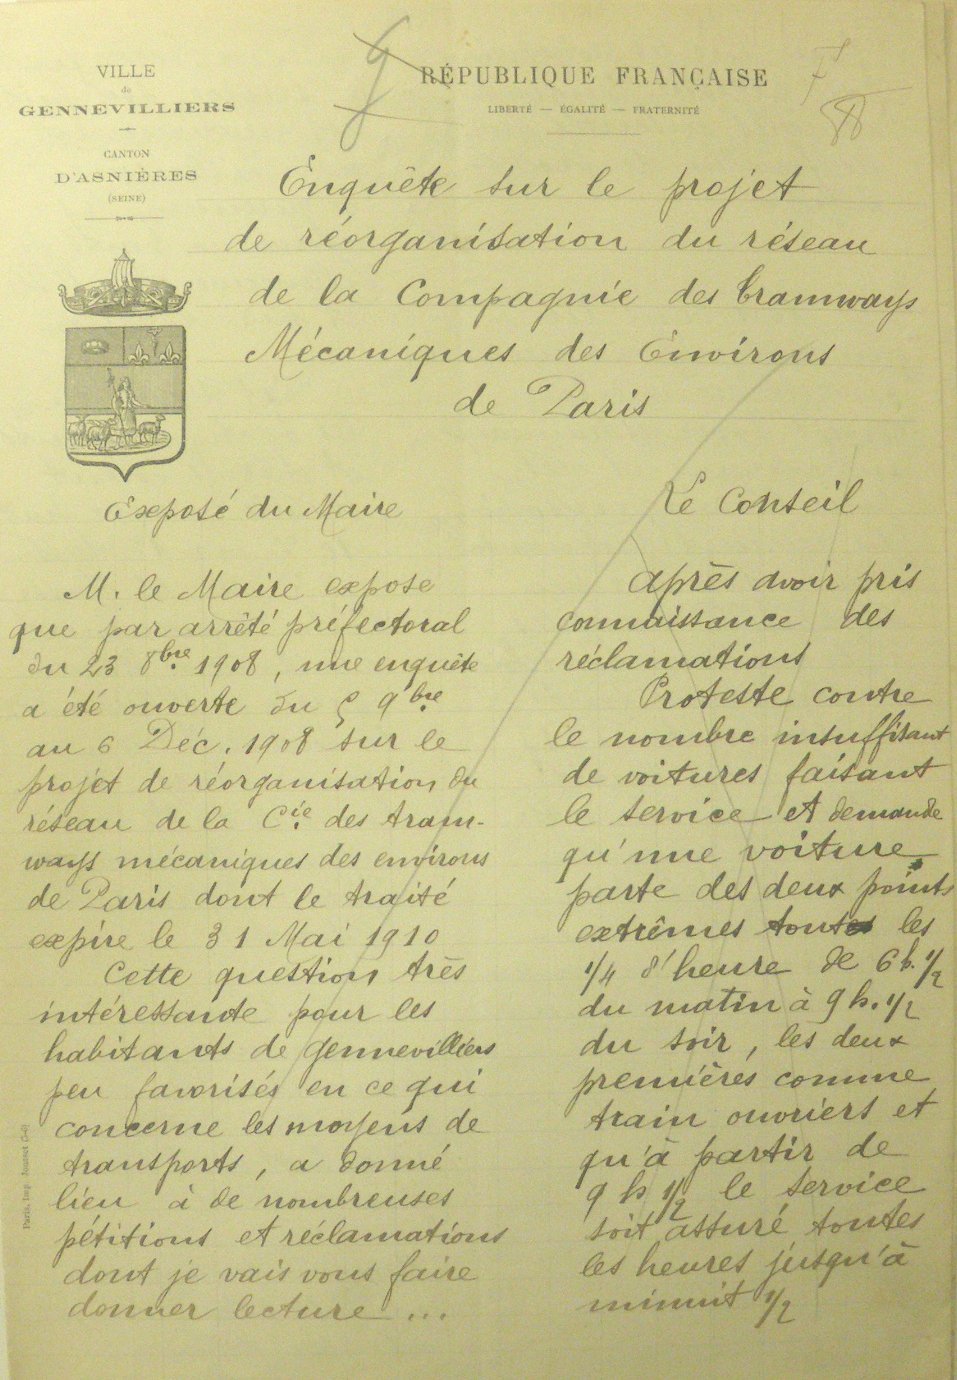 VILLE
de
GENNEVILLIERS
CANTON
D'ASNIÈRES
(SEINE)
RÉPUBLIQUE FRANÇAISE
LIBERTÉ — ÉGALITÉ — FRATERNITÉ
Enquête sur le projet
de réorganisation du réseau
de la Compagnie des tramways
Mécaniques des Environs
de Paris
Exposé du Maire
M. le Maire expose
que par arrêté préfectoral
du 23 8bre 1908, une enquête
a été ouverte du 5 9bre
au 6 Déc. 1908 sur le
projet de réorganisation du
réseau de la Cie. des tram-
ways mécaniques des environs
de Paris dont le traité
expire le 31 Mai 1910
Cette question très
intéressante pour les
habitants de Gennevilliers
peu favorisés en ce qui
concerne les moyens de
transports, a donné
lieu à de nombreuses
pétitions et réclamations
dont je vais vous faire
donner lecture ...
Le Conseil
après avoir pris
connaissance des
réclamations
Proteste contre
le nombre insuffisant
de voitures faisant
le service et demande
qu'une voiture
parte des deux points
extrêmes toutes les
1/4 d'heure de 6 h. 1/2
du matin à 9 h. 1/2
du soir, les deux
premières comme
train ouvriers et
qu'à partir de
9 h 1/2 le service
soit assuré toutes
les heures jusqu'à
minuit 1/2